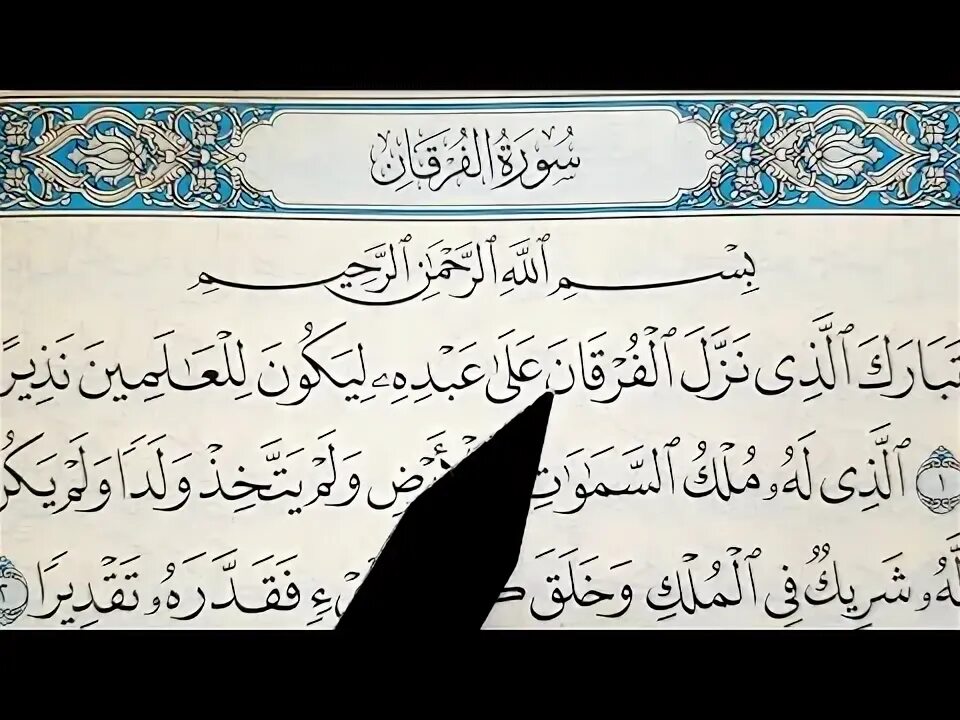 سُورَةُ الفُرْقَانِ
بِسْمِ ٱللَّهِ ٱلرَّحْمَٰنِ ٱلرَّحِيمِ
تَبَارَكَ ٱلَّذِى نَزَّلَ ٱلْفُرْقَانَ عَلَىٰ عَبْدِهِۦ لِيَكُونَ لِلْعَٰلَمِينَ نَذِيرًا
١ ٱلَّذِى لَهُۥ مُلْكُ ٱلسَّمَٰوَٰتِ وَلَمْ يَتَّخِذْ وَلَدًا وَلَمْ
شَرِيكٌ فِى ٱلْمُلْكِ وَخَلَقَ فَقَدَّرَهُۥ تَقْدِيرًا ٢